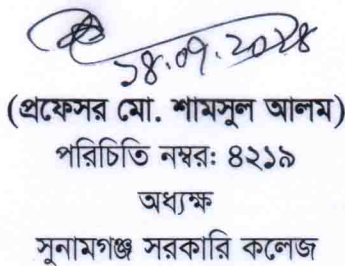 ১৪.০৭.২০২৪
(প্রফেসর মো. শামসুল আলম)
পরিচিতি নম্বর: ৪২১৯
অধ্যক্ষ
সুনামগঞ্জ সরকারি কলেজ